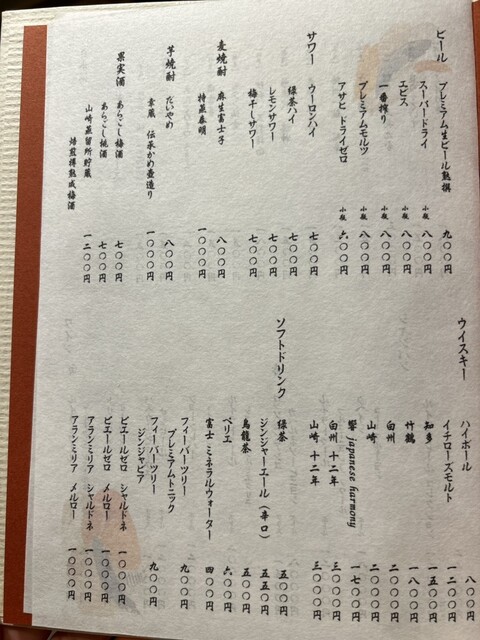 ビール
プレミアム生ビール熟撰 九〇〇円
スーパードライ 小瓶 八〇〇円
エビス 小瓶 八〇〇円
一番搾り 小瓶 八〇〇円
プレミアムモルツ 小瓶 八〇〇円
アサヒ ドライゼロ 小瓶 六〇〇円
サワー
ウーロンハイ 七〇〇円
緑茶ハイ 七〇〇円
レモンサワー 七〇〇円
梅干しサワー 七〇〇円
麦焼酎
麻生富士子 八〇〇円
特蒸泰明 一〇〇〇円
芋焼酎
だいやめ 八〇〇円
幸蔵 伝承かめ壺造り 一〇〇〇円
果実酒
あらごし梅酒 七〇〇円
あらごし桃酒 七〇〇円
山崎蒸留所貯蔵
焙煎樽熟成梅酒 一二〇〇円
ウイスキー
ハイボール 八〇〇円
イチローズモルト 一二〇〇円
知多 一五〇〇円
竹鶴 一八〇〇円
白州 二〇〇〇円
山崎 二〇〇〇円
響 japanese harmony 一七〇〇円
白州 十二年 三〇〇〇円
山崎 十二年 三〇〇〇円
ソフトドリンク
緑茶 五〇〇円
ジンジャーエール(辛口) 五五〇円
烏龍茶 五〇〇円
ペリエ 六〇〇円
富士 ミネラルウォーター 四〇〇円
フィーバーツリー
プレミアムトニック 九〇〇円
フィーバーツリー
ジンジャビア 九〇〇円
ピエールゼロ シャルドネ 一〇〇〇円
ピエールゼロ メルロー 一〇〇〇円
アランミリア シャルドネ 一〇〇〇円
アランミリア メルロー 一〇〇〇円